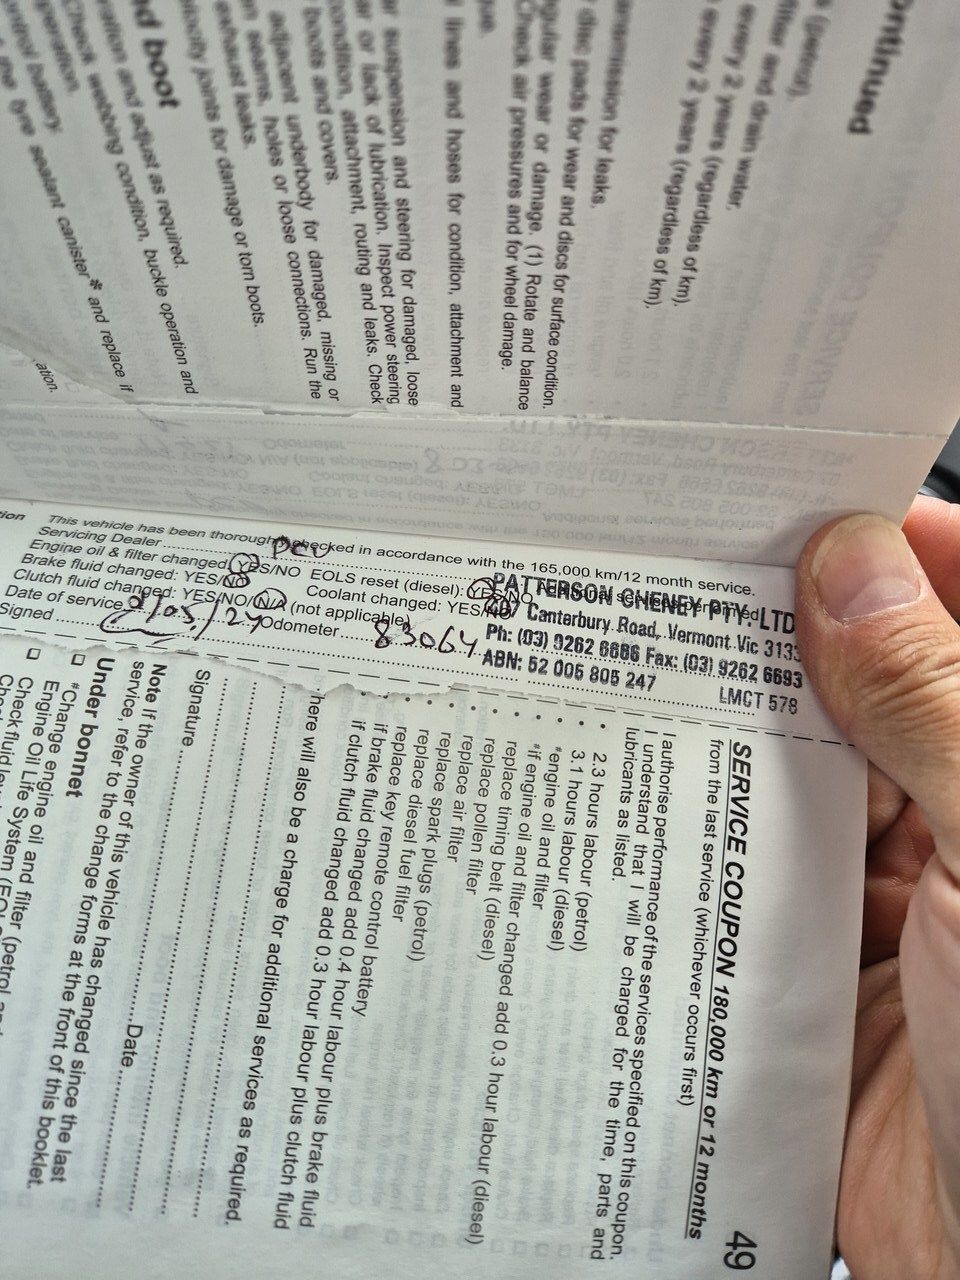 ontinued
(petrol).
filter and drain water.
every 2 years (regardless of km).
every 2 years (regardless of km).
ansmission for leaks.
disc pads for wear and discs for surface condition.
gular wear or damage. (1) Rotate and balance
Check air pressures and for wheel damage.
que.
l lines and hoses for condition, attachment and
ar suspension and steering for damaged, loose
ar or lack of lubrication. Inspect power steering
condition, attachment, routing and leaks. Check
boots and covers.
adjacent underbody for damaged, missing or
n seams, holes or loose connections. Run the
exhaust leaks.
elocity joints for damage or torn boots.
nd boot
ration and adjust as required.
Check webbing condition, buckle operation and
operation.
ontrol battery.
tyre sealant canister* and replace if
ation.
tion This vehicle has been thoroughly checked in accordance with the 165,000 km/12 month service.
Servicing Dealer
Engine oil & filter changed: YES/NO EOLS reset (diesel): YES/NO
Brake fluid changed: YES/NO Coolant changed: YES/NO
Clutch fluid changed: YES/NO/N/A (not applicable)
Date of service 2/05/24 Odometer 83064
Signed
PATTERSON CHENEY PTY. LTD
407 Canterbury Road, Vermont Vic 3133
Ph: (03) 9262 6666 Fax: (03) 9262 6693
ABN: 52 005 805 247 LMCT 578
49
SERVICE COUPON 180,000 km or 12 months
from the last service (whichever occurs first)
I authorise performance of the services specified on this coupon.
I understand that I will be charged for the time, parts and
lubricants as listed.
• 2.3 hours labour (petrol)
• 3.1 hours labour (diesel)
• *engine oil and filter
• *if engine oil and filter changed add 0.3 hour labour (diesel)
• replace timing belt (diesel)
• replace pollen filter
• replace air filter
• replace spark plugs (petrol)
• replace diesel fuel filter
• replace key remote control battery
• if brake fluid changed add 0.4 hour labour plus brake fluid
• if clutch fluid changed add 0.3 hour labour plus clutch fluid
here will also be a charge for additional services as required.
Signature Date
Note If the owner of this vehicle has changed since the last
service, refer to the change forms at the front of this booklet.
Under bonnet
□ *Change engine oil and filter (petrol and
Engine Oil Life System (EOL
□ Check fluid